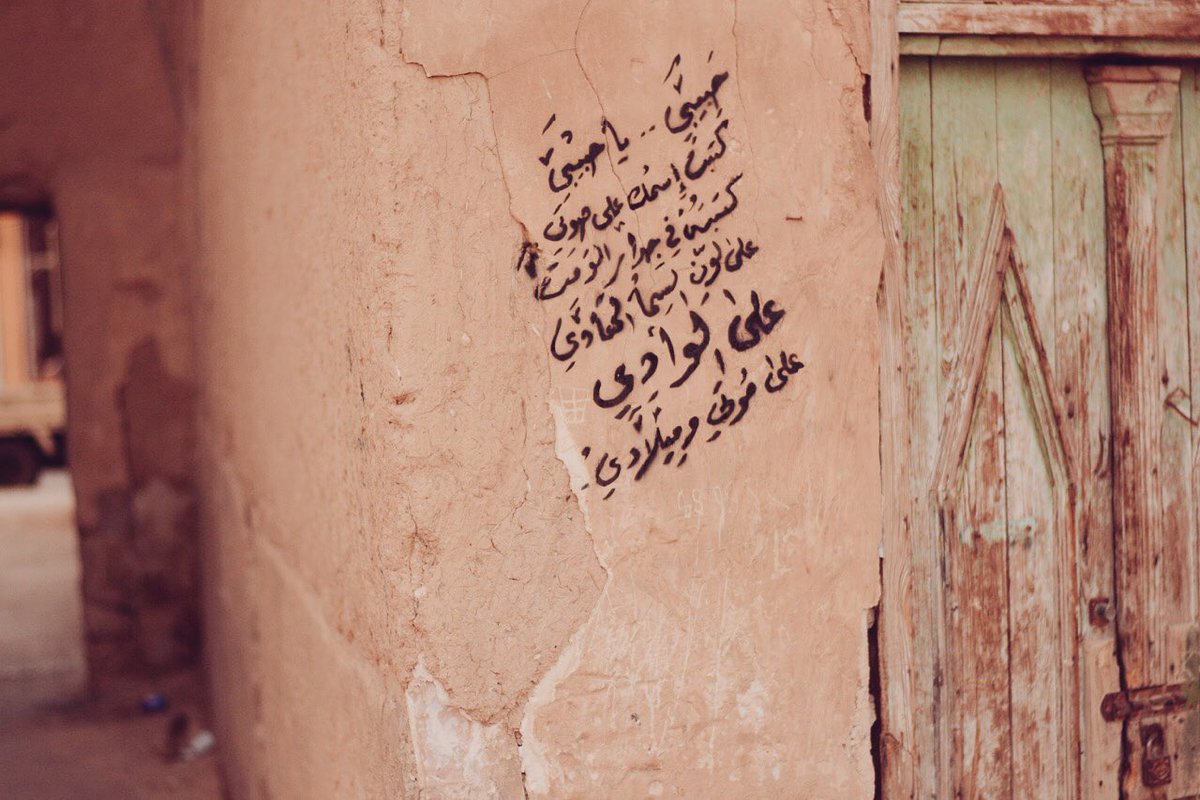 حَبِيبِي .. يا حبيبي
كتبت إسمك على صوتي
كتبته في جدار الوقت
على لون السما الهادي
على الوادي
على موتي وميلادي